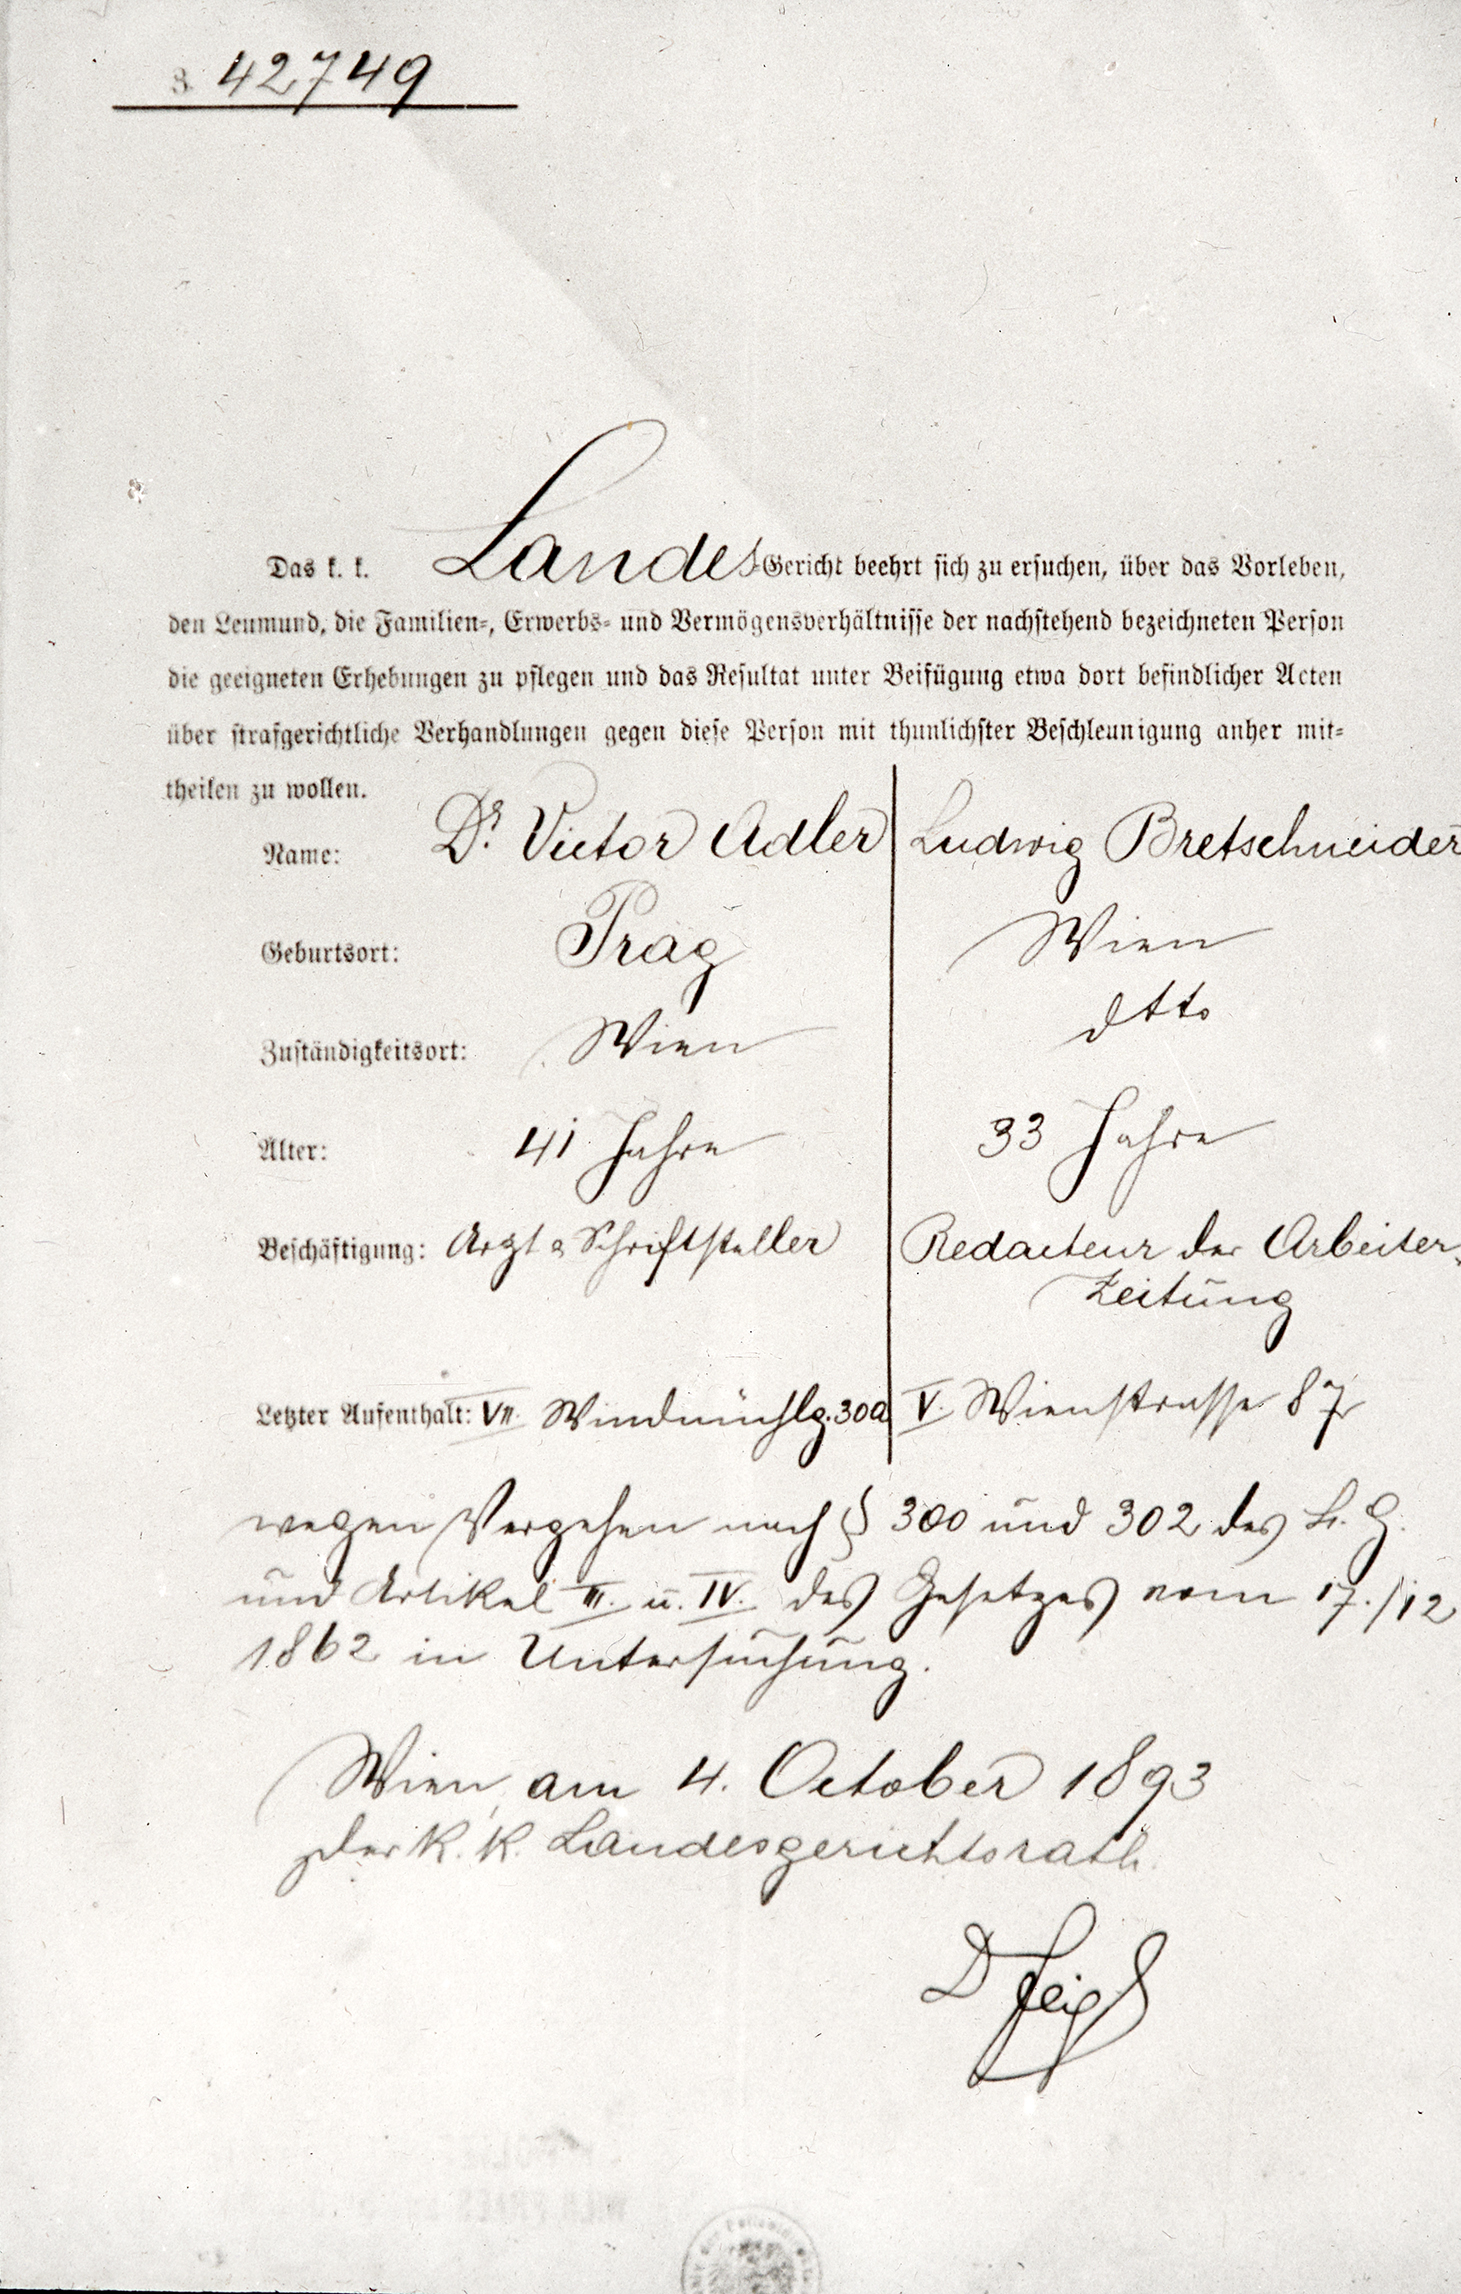 42749
Das k. k. Landes-Gericht beehrt sich zu ersuchen, über das Vorleben,
den Leumund, die Familien-, Erwerbs- und Vermögensverhältnisse der nachstehend bezeichneten Person
die geeigneten Erhebungen zu pflegen und das Resultat unter Beifügung etwa dort befindlicher Acten
über strafgerichtliche Verhandlungen gegen diese Person mit thunlichster Beschleunigung anher mit-
theilen zu wollen.
Name: Dr. Victor Adler Ludwig Bretschneider
Geburtsort: Prag Wien
Zuständigkeitsort: Wien dtto
Alter: 41 Jahre 33 Jahre
Beschäftigung: Arzt & Schriftsteller Redacteur der Arbeiter-
Zeitung
Letzter Aufenthalt: VII. Windmühlg. 30a V. Wienstrasse 87
wegen Vergehen nach § 300 und 302 des St. G.
und Artikel III. u. IV. des Gesetzes vom 17./12
1862 in Untersuchung.
Wien am 4. October 1893
Der k. k. Landesgerichtsrath
D Feigl